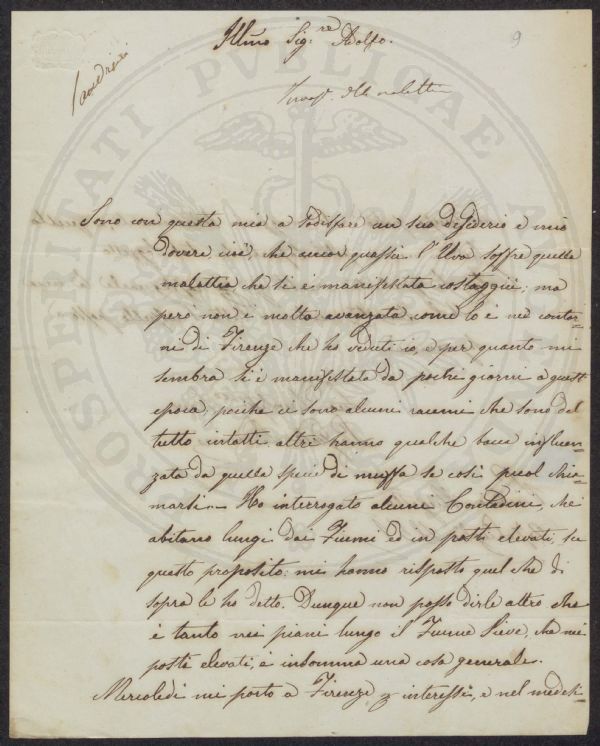 Illmo Sig.re Adolfo.
9
Sono con questa mia a sodisfare un suo desiderio e mio
dovere cioè, che ancor quassù l'Uva soffre quella
malattia che si è manifestata costaggiù; ma
però non è molto avanzata come lo è nei contor=
ni di Firenze che ho veduti io, e per quanto mi
sembra si è manifestata da pochi giorni a quest'
epoca, poiche ci sono alcuni racemi che sono del
tutto intatti altri hanno qualche bacca influen=
zata da quella specie di muffa se così puol chia=
marsi. Ho interrogato alcuni Contadini, che
abitano lungi dai Fiumi ed in posti elevati, su
questo proposito: mi hanno risposto quel che di
sopra le ho detto. Dunque non posso dirle altro che
è tanto nei piani lungo il Fiume Sieve, che nei
posti elevati, è insomma una cosa generale.
Mercoledì mi porto a Firenze p interessi, e nel medesi=
PROSPERITATI PVBLICAE